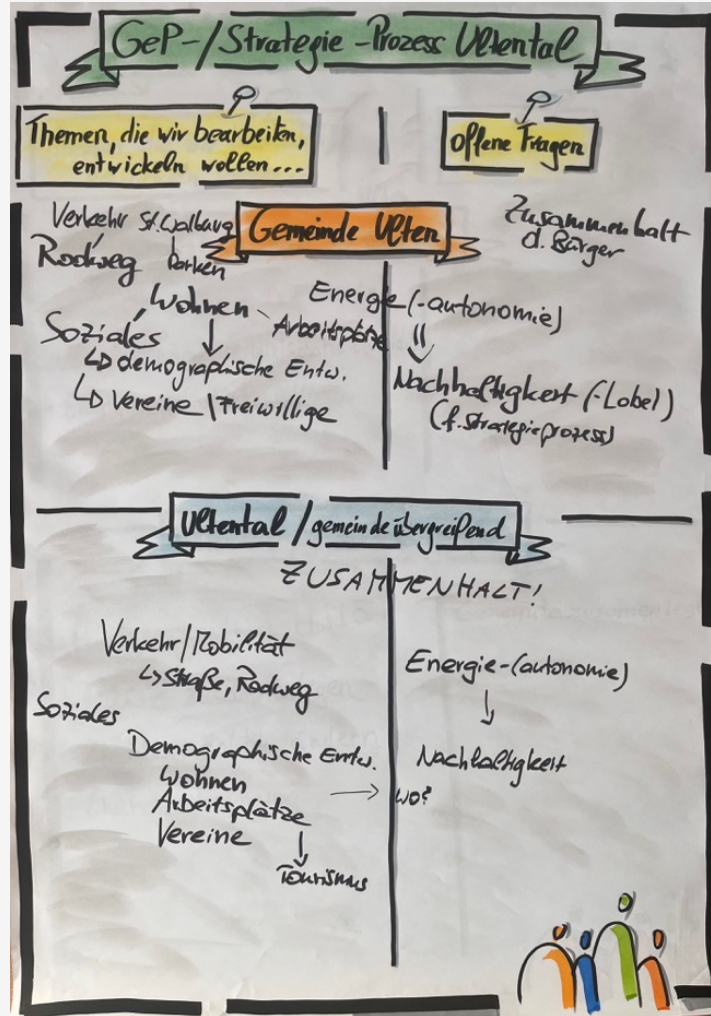 GeP-/Strategie-Prozess Ultental
Themen, die wir bearbeiten,
entwickeln wollen...
offene Fragen
Gemeinde Ulten
Verkehr St. Walburg
Radweg
Parken
Wohnen
Arbeitsplätze
Soziales
↳ demographische Entw.
↳ Vereine / Freiwillige
Zusammenhalt
d. Bürger
Energie (-autonomie)
Nachhaltigkeit (-Label)
(f. Strategieprozess)
Ultental / gemeindeübergreifend
ZUSAMMENHALT!
Verkehr/Mobilität
↳ Straße, Radweg
Soziales
Demographische Entw.
Wohnen
Arbeitsplätze → wo?
Vereine
↓
Tourismus
Energie-(autonomie)
↓
Nachhaltigkeit